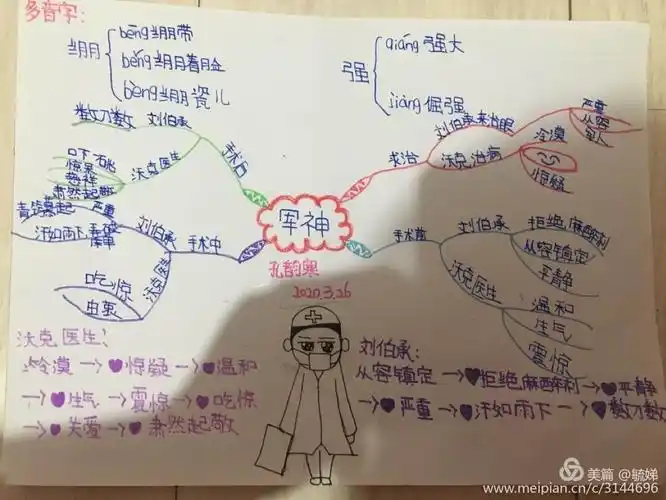 多音字:
绷
bēng 绷带
běng 绷着脸
bèng 绷瓷儿
强
qiáng 强大
jiàng 倔强
军神
孔韵寒
2020.3.26
求治
刘伯承来治眼
严重
从容
军人
沃克治病
冷漠
惊疑
手术前
刘伯承
拒绝麻醉剂
从容镇定
平静
沃克医生
温和
生气
震惊
手术中
刘伯承
严重
青筋暴起
汗如雨下
沃克医生
吃惊
由衷
手术后
刘伯承
数刀数
沃克医生
惊呆
慈祥
肃然起敬
沃克医生:
冷漠→惊疑→温和
→生气→震惊→吃惊
→关爱→肃然起敬
刘伯承:
从容镇定→拒绝麻醉剂→平静
→严重→汗如雨下→数刀数
美篇 @毓娣
www.meipian.cn/c/3144696